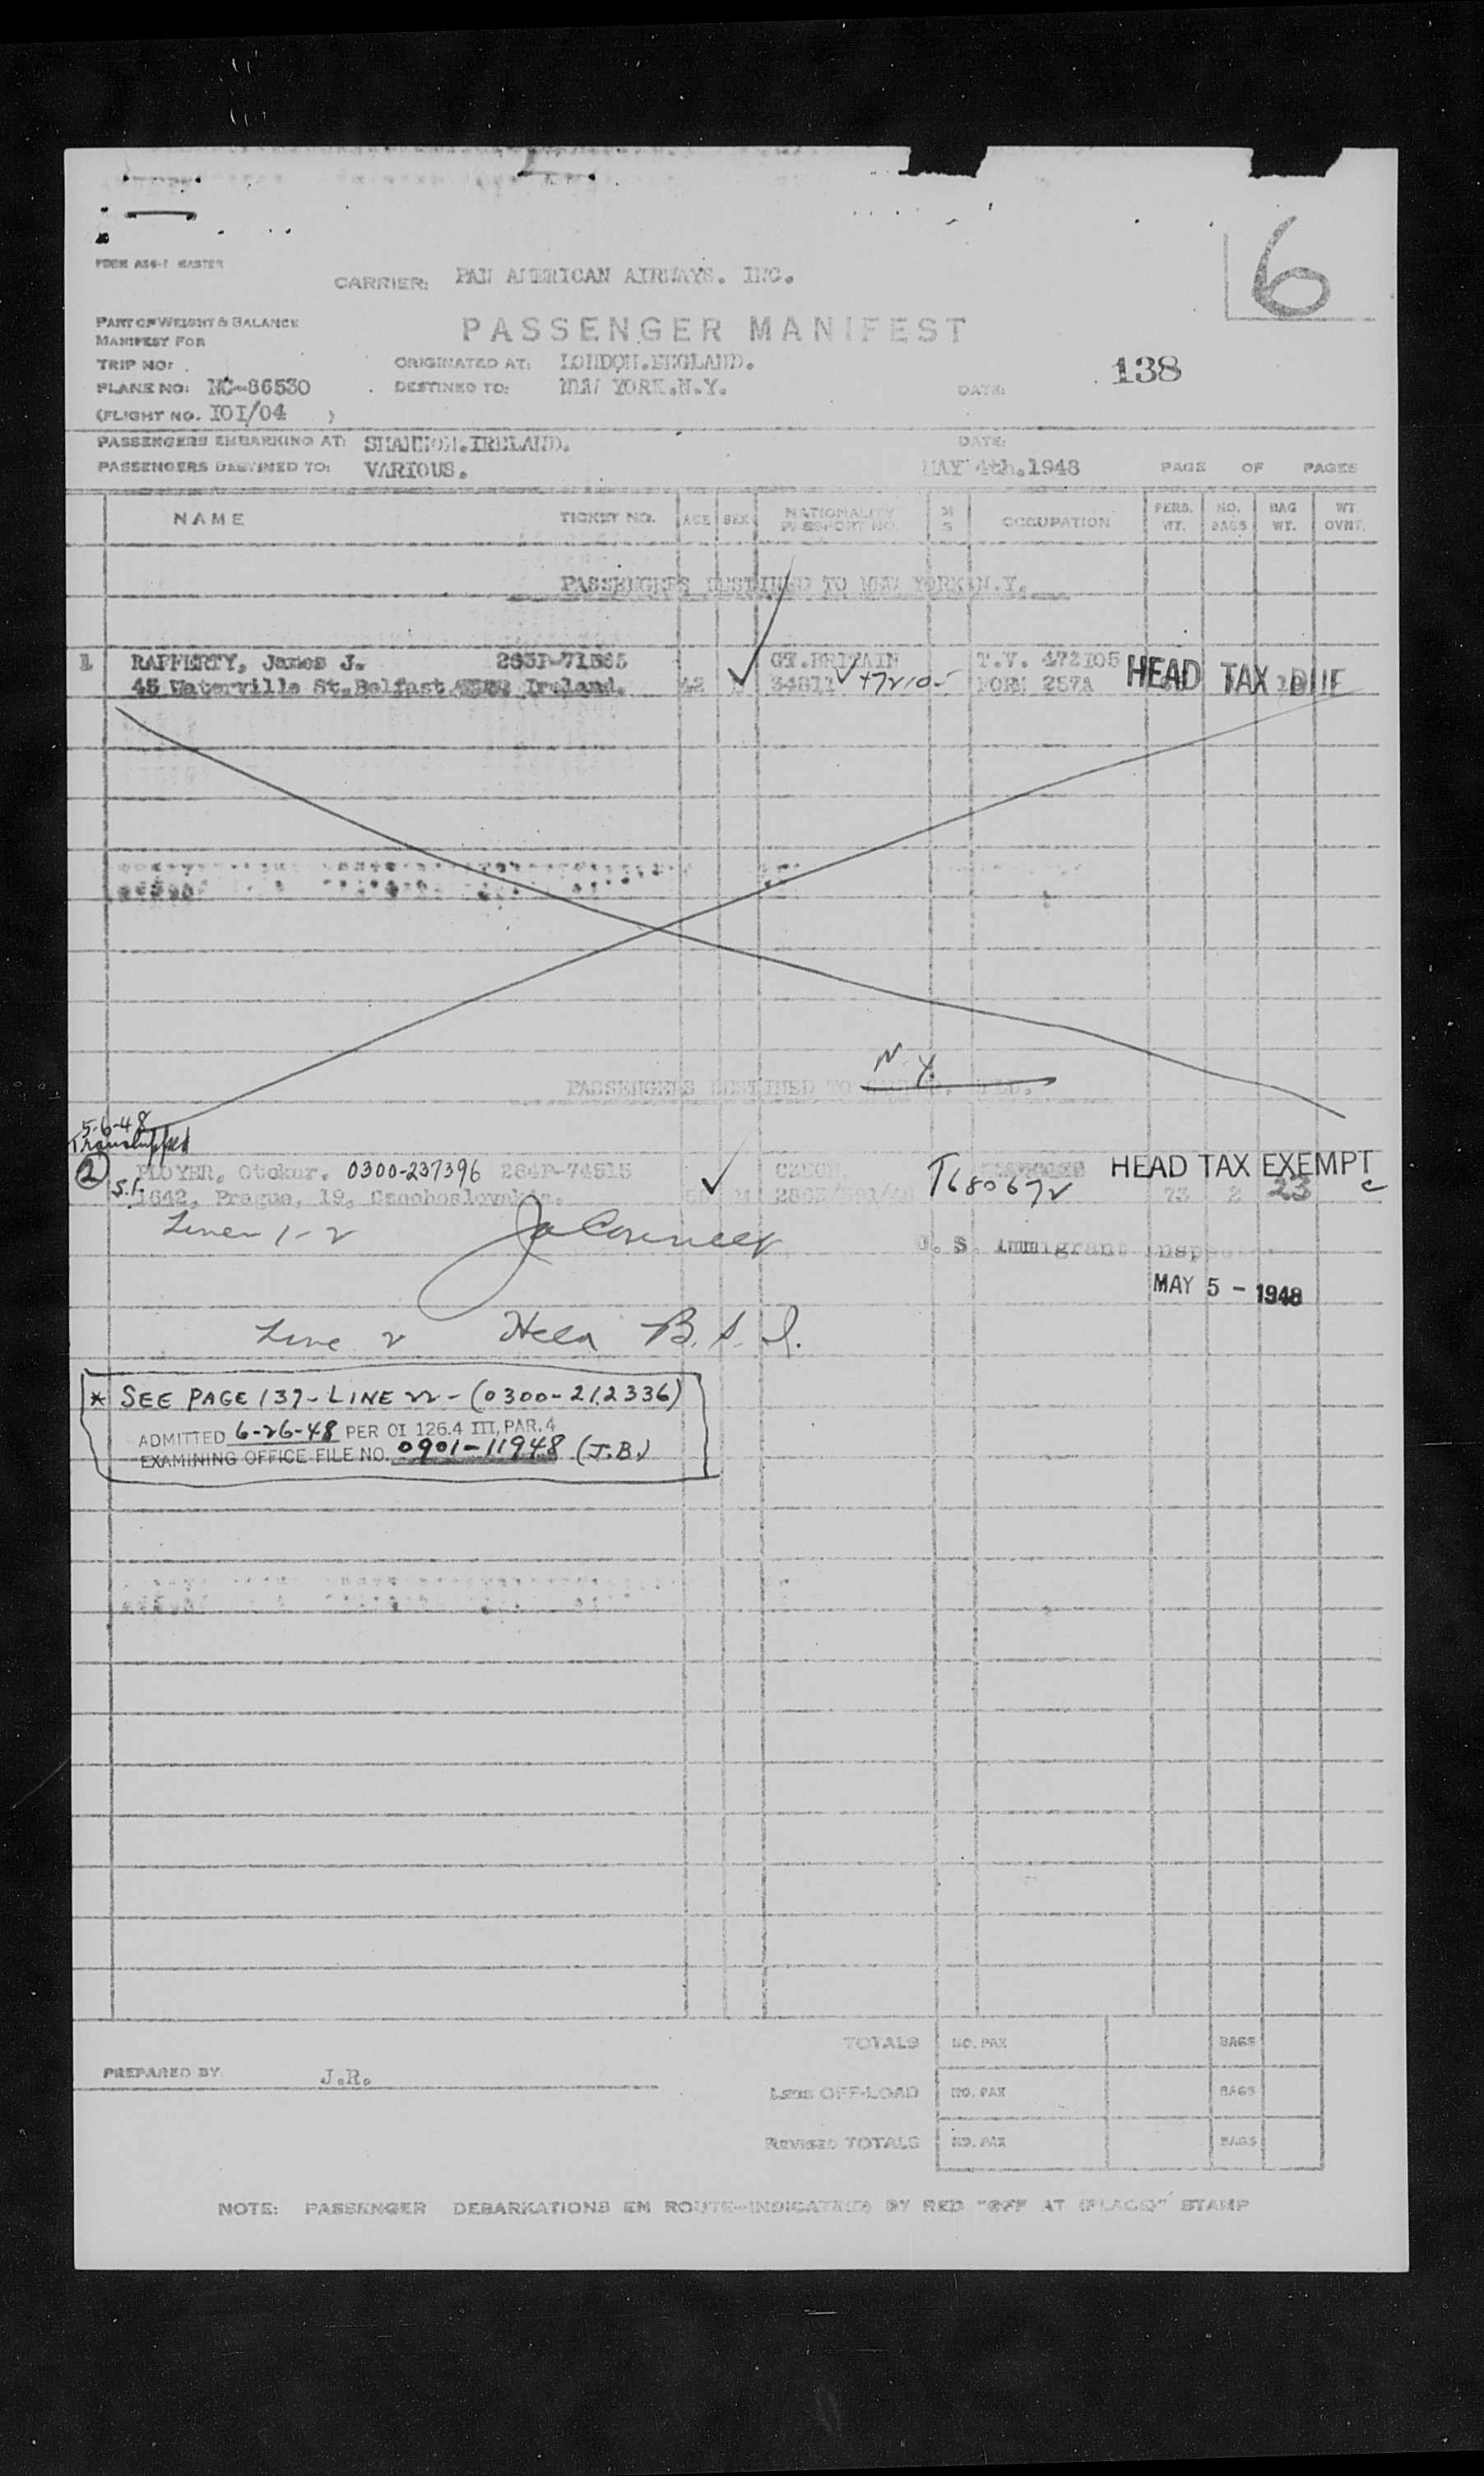 6
FORM AS6-1 MASTER
CARRIER: PAN AMERICAN AIRWAYS. INC.
PART OF WEIGHT & BALANCE
MANIFEST FOR
PASSENGER MANIFEST
TRIP NO:
ORIGINATED AT: LONDON.ENGLAND.
138
PLANE NO: NC-86530
DESTINED TO: NEW YORK.N.Y.
DATE:
(FLIGHT NO. IOI/04 )
PASSENGERS EMBARKING AT: SHANNON.IRELAND.
DATE:
PASSENGERS DESTINED TO: VARIOUS.
MAY 4th.1948
PAGE OF PAGES
NAME TICKET NO. AGE SEX NATIONALITY PASSPORT NO. M S OCCUPATION PERS. WT. NO. BAGS BAG WT. WT. OVNT.
PASSENGERS DESTINED TO NEW YORK N.Y.
1 RAFFERTY, James J. 263P-71565 GT.BRITAIN T.V. 472105 HEAD TAX DUE
45 Waterville St.Belfast Ireland. 42 34811 47210- FORM 257A
N.Y.
PASSENGERS DESTINED TO
5-6-48
Transhipped
2 PLOYER, Otokar. 0300-237396 284P-74515 CZECH T680672 HEAD TAX EXEMPT
S.I. 1642, Prague, 19, Czechoslovakia. 73 2 23
Lines 1-2
U. S. Immigrant Inspe
MAY 5 - 1948
Line 2 Held B.S.I.
* SEE PAGE 137- LINE 22 - (0300-212336)
ADMITTED 6-26-48 PER OI 126.4 III, PAR. 4
EXAMINING OFFICE FILE NO. 0901-11948 (J.B.)
TOTALS NO. PAX BAGS
PREPARED BY: J.R.
LESS OFF-LOAD NO. PAX BAGS
REVISED TOTALS NO. PAX BAGS
NOTE: PASSENGER DEBARKATIONS EN ROUTE-INDICATED BY RED "OFF AT (PLACE)" STAMP